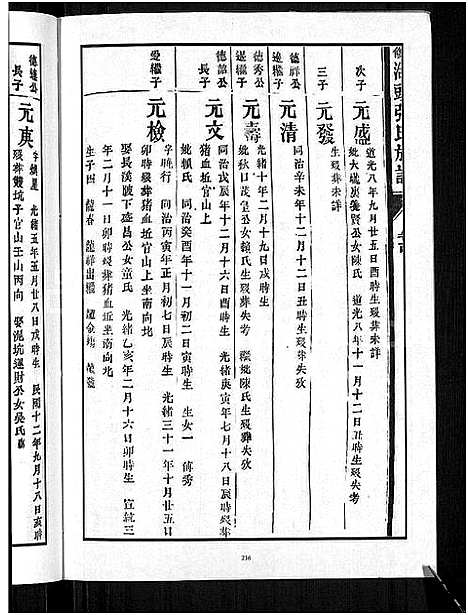 張氏族譜
次子
元盛
道光八年九月廿五日酉時生歿葬未詳
公女陳氏 道光八年十一月十二日丑時生歿失考
三子
元發
生歿葬未詳
德祥公
繼子
元清
同治辛未年十二月十二日丑時生歿葬失攷
德秀公
繼子
元壽
光緒十年二月十九日戌時生
妣秋口茂皇公女賴氏生歿葬失考 繼妣陳氏生歿葬失攷
長子
元文
同治戊辰年十二月十六日酉時生 光緒庚寅年七月十八日辰時歿葬
豬血坵官山上
妣賴氏 同治癸酉年十一月初二日寅時生 生女一 傳秀
繼子
元檢
字 行 同治丙寅年正月初七日辰時生 光緒三十一年十月廿五日
卯時歿葬豬血坵官山上坐南向北
娶長溪陂下盛昌公女童氏 光緒乙亥年二月十六日卯時生 宣統三
年二月十一日卯時歿葬豬血坵坐南向北
生子四
德達公
長子
元典
光緒五年五月廿八日戌時生 民國十二年九月十八日亥時
歿葬雙坑子官山壬山丙向 娶混坑運財公女吳氏
216